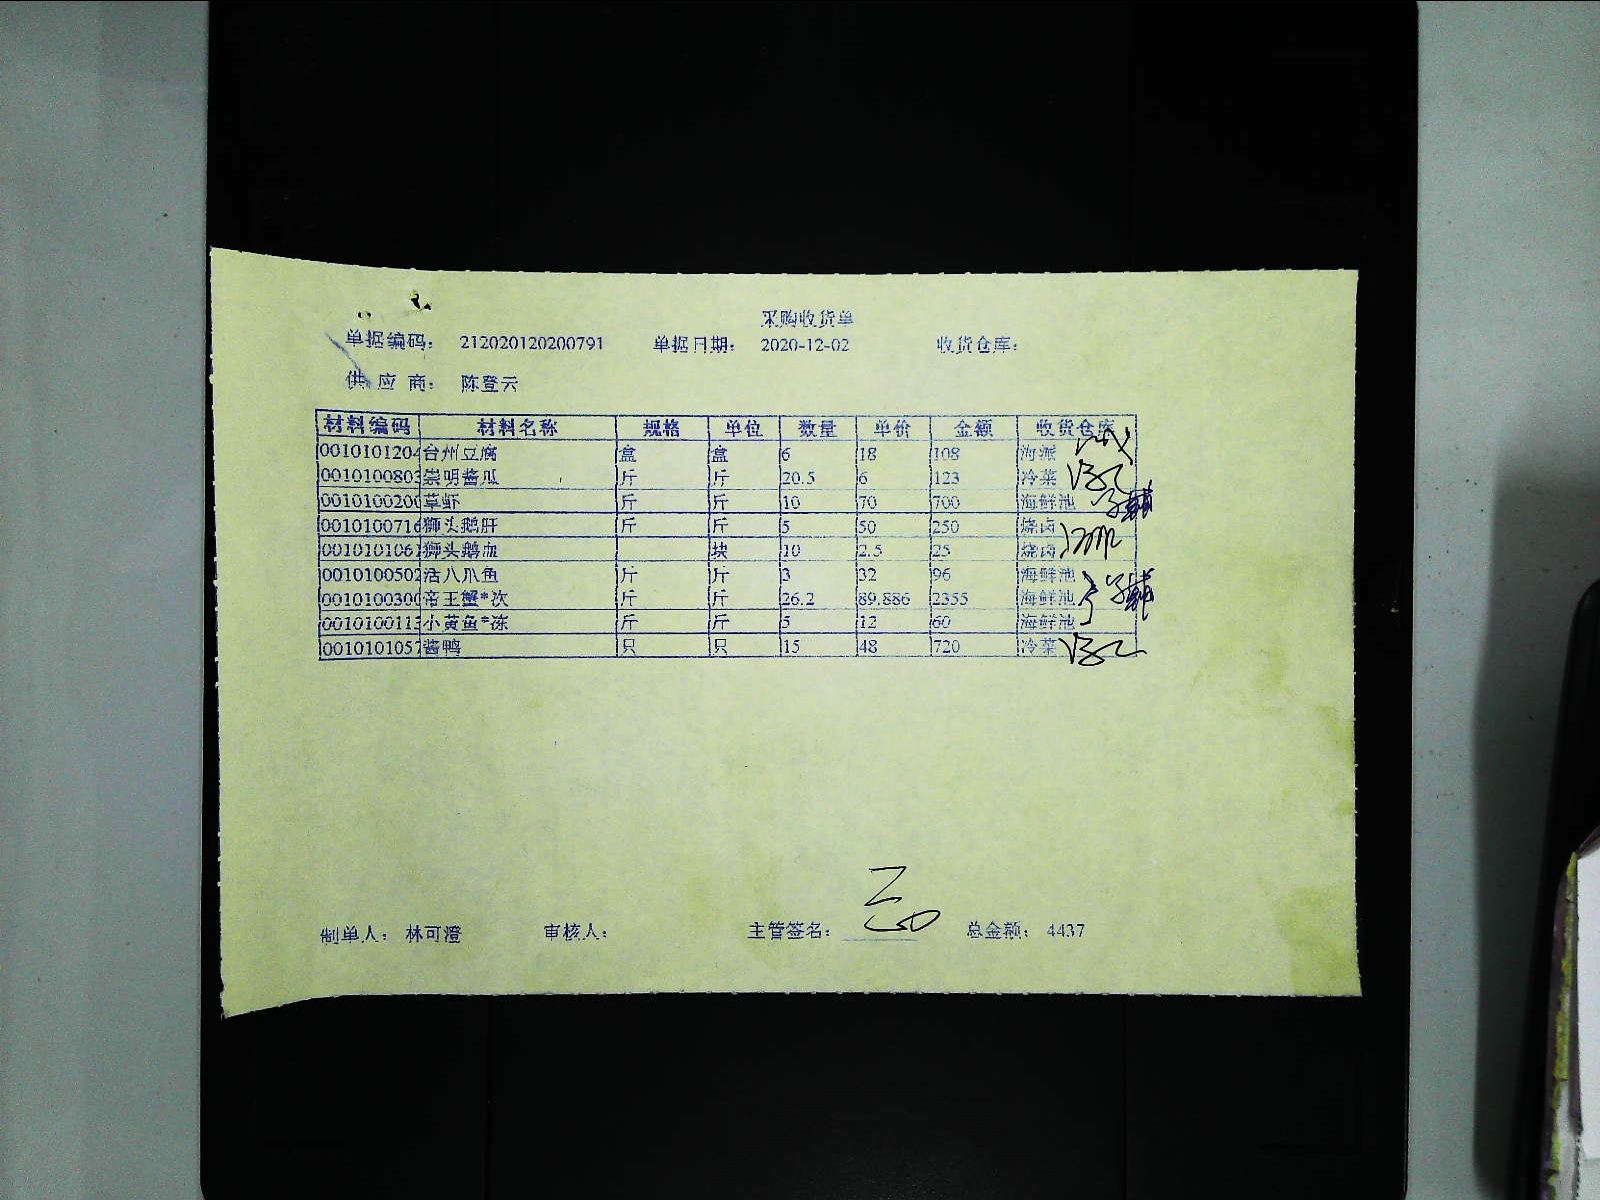 采购收货单
单据编码： 212020120200791 单据日期： 2020-12-02 收货仓库：
供 应 商： 陈登云
材料编码 材料名称 规格 单位 数量 单价 金额 收货仓库
0010101204 台州豆腐 盒 盒 6 18 108 海派
0010100803 崇明酱瓜 斤 斤 20.5 6 123 冷菜
0010100200 草虾 斤 斤 10 70 700 海鲜池
0010100716 狮头鹅肝 斤 斤 5 50 250 烧卤
0010101061 狮头鹅血 块 10 2.5 25 烧卤
0010100502 活八爪鱼 斤 斤 3 32 96 海鲜池
0010100300 帝王蟹*次 斤 斤 26.2 89.886 2355 海鲜池
0010100113 小黄鱼*冻 斤 斤 5 12 60 海鲜池
0010101057 酱鸭 只 只 15 48 720 冷菜
制单人： 林可澄 审核人： 主管签名： 总金额： 4437